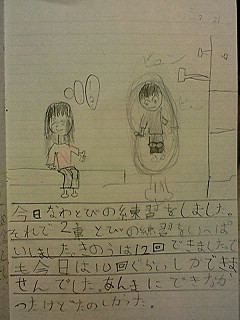 ビュン
今日なわとびの練習をしました。
それで2重とびの練習をいっぱ
いしました。きのうは12回できました。で
も今日は10回ぐらいしかできま
せんでした。あんまにできなか
ったけどたのしかった。